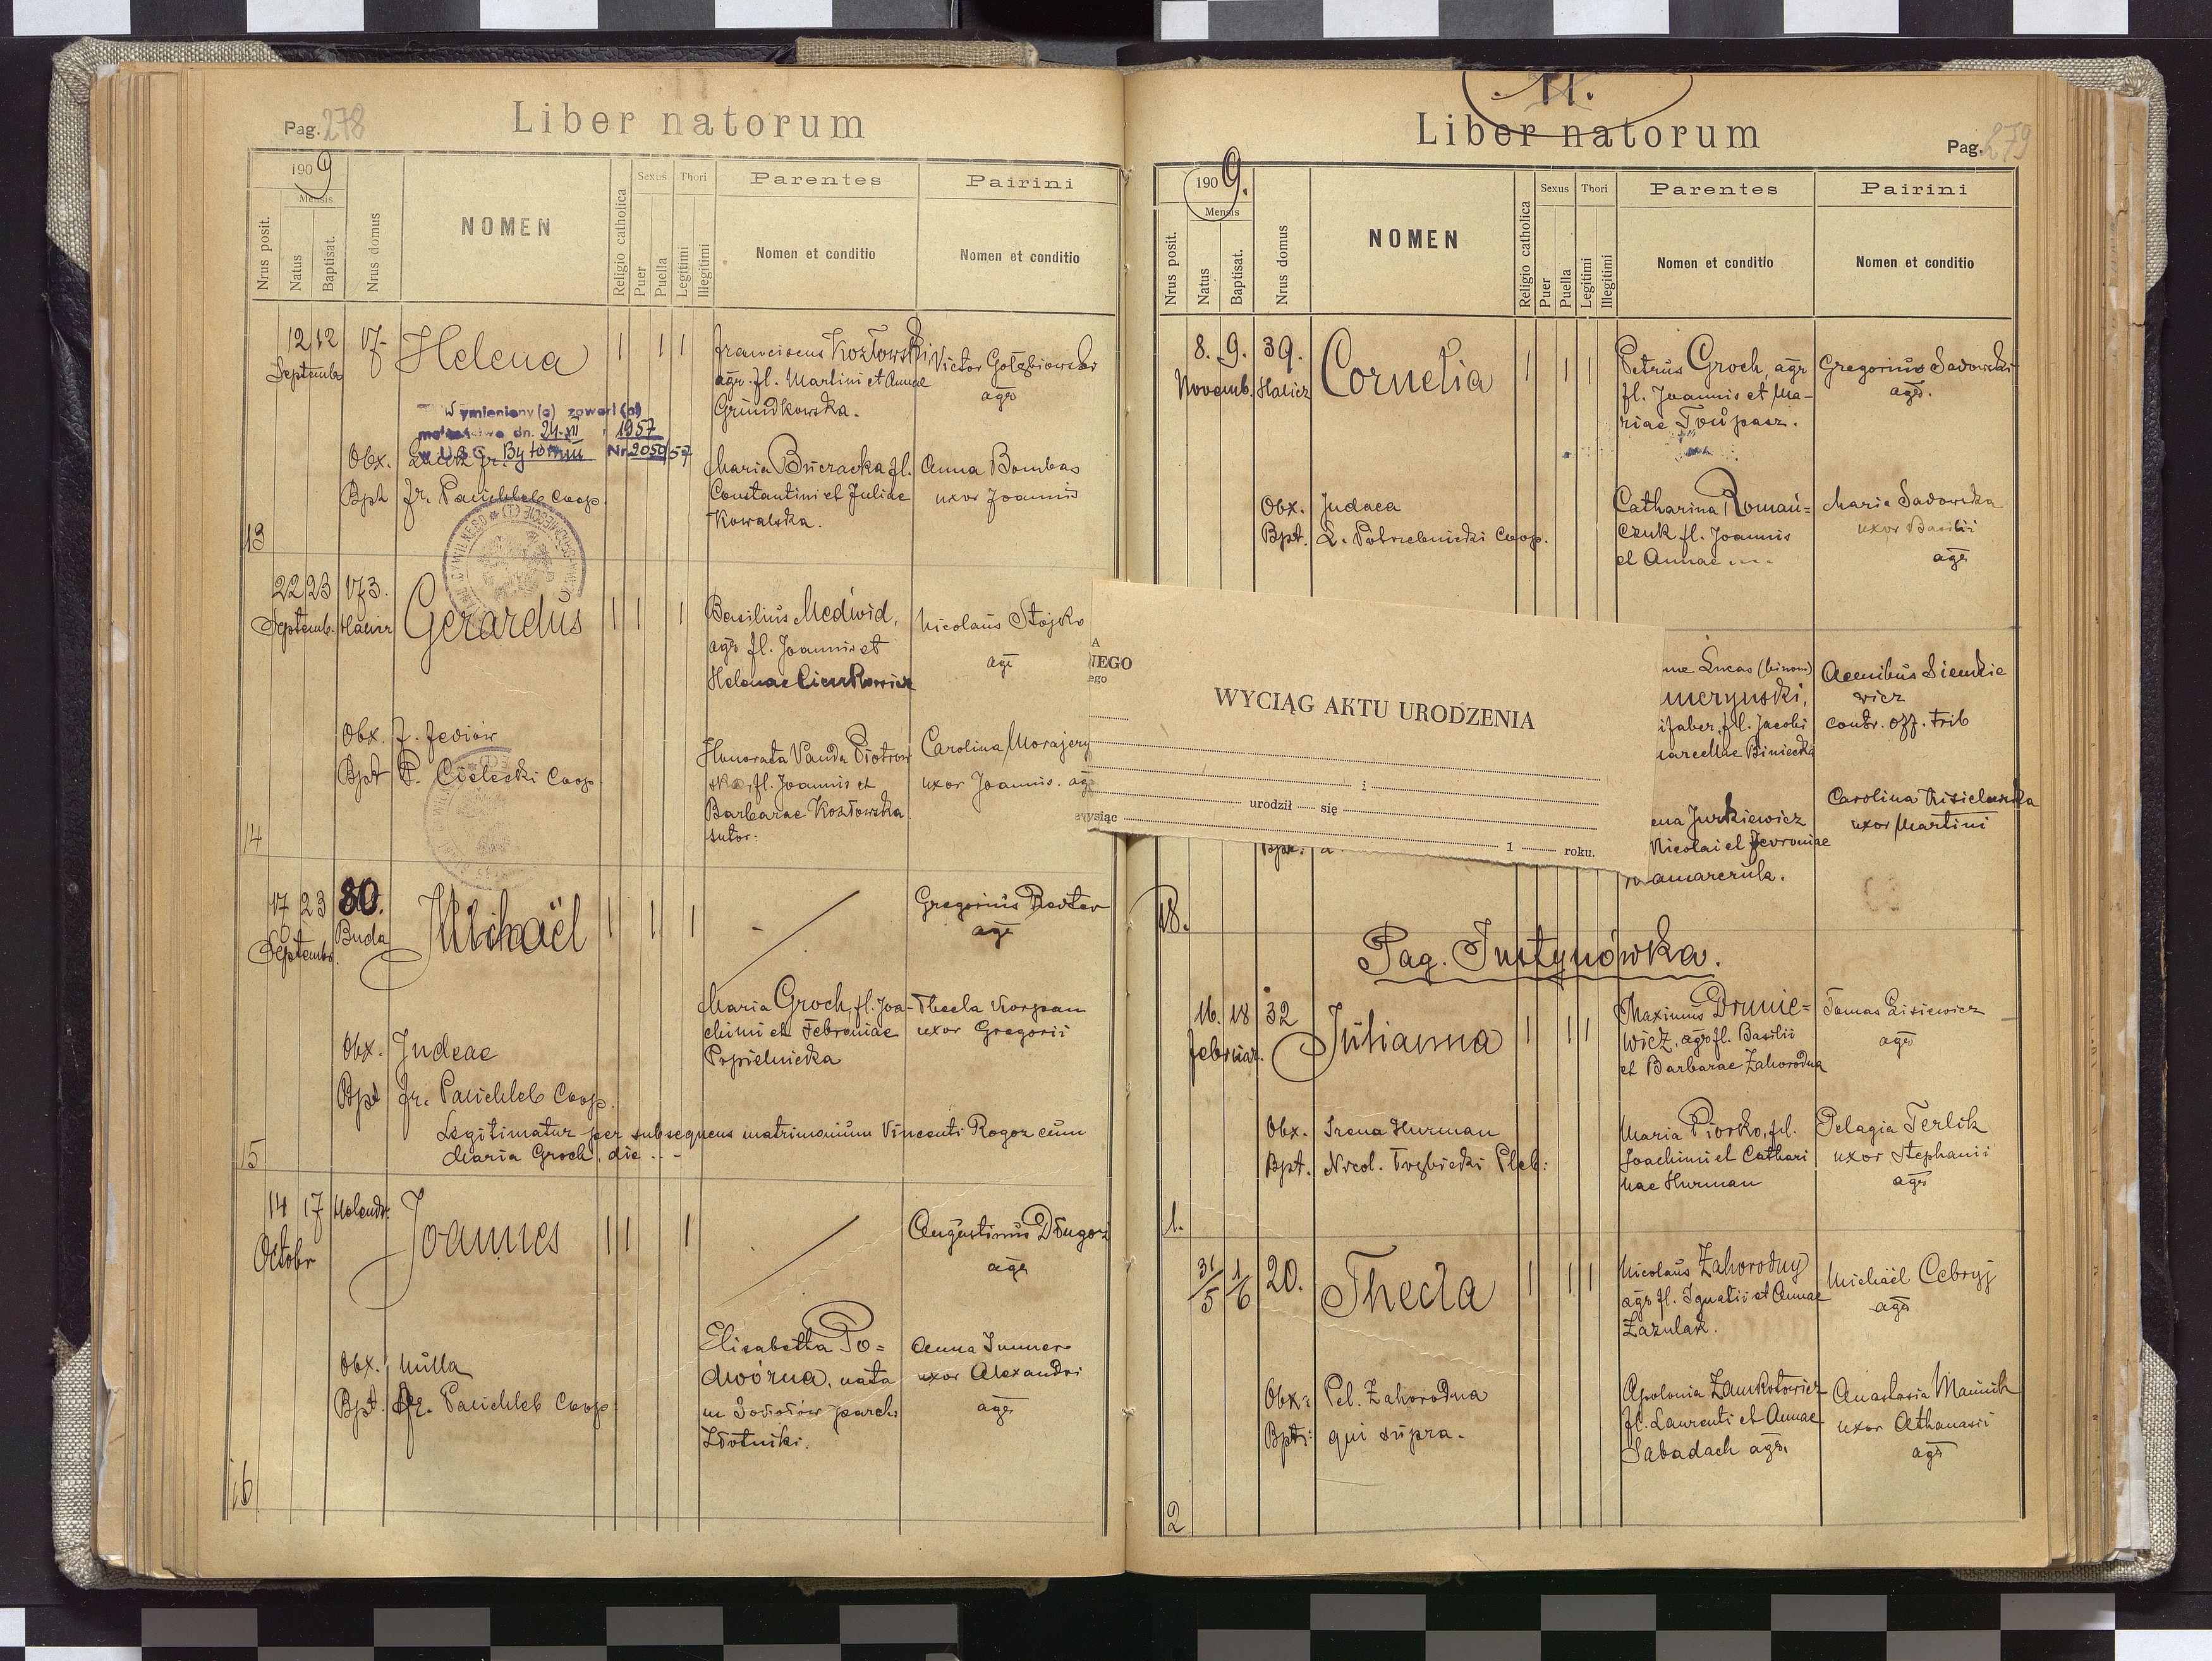 Pag. 278
Liber natorum
1909
Mensis
Nrus posit.
Natus
Baptisat.
Nrus domus
NOMEN
Religio catholica
Sexus
Puer
Puella
Thori
Legitimi
Illegitimi
Parentes
Nomen et conditio
Pairini
Nomen et conditio
12 12 17
Septemb
Helena
Franciscus Kozłowski
agr. fl. Martini et Annae
Grundkowska.
Victor Gołębiowski
agr
Wymieniony(a) zawarł(a)
małżeństwo dn. 24.XII 1957
w U.S.C. Bytomiu Nr 2050/57
Obx.
Bpt Fr. Pauchleb Coop.
Maria Bucracka fl.
Constantini et Juliae
Kowalska.
Anna Bombas
uxor Joannis
13
22 23 173.
Septemb. Halicz
Gerardus
Basilius Medwid,
agr fl. Joannis et
Helenae Cienkowicz
Nicolaus Stojko
agr
Obx. J. Fediów
Bpt P. Cielecki Coop.
Honorata Vanda Piotrow
ska, fl. Joannis et
Barbarae Kozłowska
sutor:
Carolina Morajery
uxor Joannis. agr
14
17 23 80.
Septemb. Buda
Michaël
Gregorius
agr
Maria Groch, fl. Joa-
chimi et Febroniae
Popielnicka
Thecla Korpan
uxor Gregorii
Obx. Judeae
Bpt Fr. Pauchleb Coop.
Legitimatur per subsequens matrimonium Vincenti Rogoz cum
Maria Groch, die ...
15
14 17 Holendr.
Octobr
Joannes
Augustinus Długosz
agr
Elisabetha Po=
dwórna, nata
in Sosnów paroch
Złotniki.
Anna Immer
uxor Alexandri
agr
Obx. nulla
Bpt. Fr. Pauchleb Coop:
16
11.
Liber natorum
Pag. 279
1909.
Mensis
Nrus posit.
Natus
Baptisat.
Nrus domus
NOMEN
Religio catholica
Sexus
Puer
Puella
Thori
Legitimi
Illegitimi
Parentes
Nomen et conditio
Pairini
Nomen et conditio
8. 9. 39.
Novemb. Halicz
Cornelia
Petrus Groch, agr
fl. Joannis et Ma-
riae
Gregorius Sadowski
agr.
Obx. Judaea
Bpt. L. Potrzebnicki Coop.
Catharina Romań=
czuk fl. Joannis
et Annae ....
Maria Sadowska
uxor Basilii
agr
NEGO
ego
WYCIĄG AKTU URODZENIA
i
urodził się
tysiąc 1 roku.
Lucas (binom)
faber, fl. Jacobi
Marcellae Biniecka
Sienkie
wicz
contr. off. trib
Jurkiewicz
Nicolai et Fevroniae
Carolina Kisielewska
uxor Martini
Bpt.
18.
Pag. Justynówka.
16. 18 32
Februar.
Julianna
Maximus Drunie=
wicz, agr fl. Basilii
et Barbarae Zahorodna
Tomas Lisiewicz
agr
Obx. Irena Hurman
Bpt. Nicol. Trzbicki Pleb:
Maria Piorko, fl.
Joachimi et Cathari
nae Hurman
Pelagia Terlik
uxor Stephanii
agr
1.
31/5 1/6 20.
Thecla
Nicolaus Zahorodny
agr fl. Ignatii et Annae
Zazulak.
Michaël Cebryj
agr
Obx: Pel. Zahorodna
Bpt: qui supra.
Apolonia Zamkotowicz
fl. Laurenti et Annae
Sabadach agr.
Anastasia Mainik
uxor Athanasii
agr
2